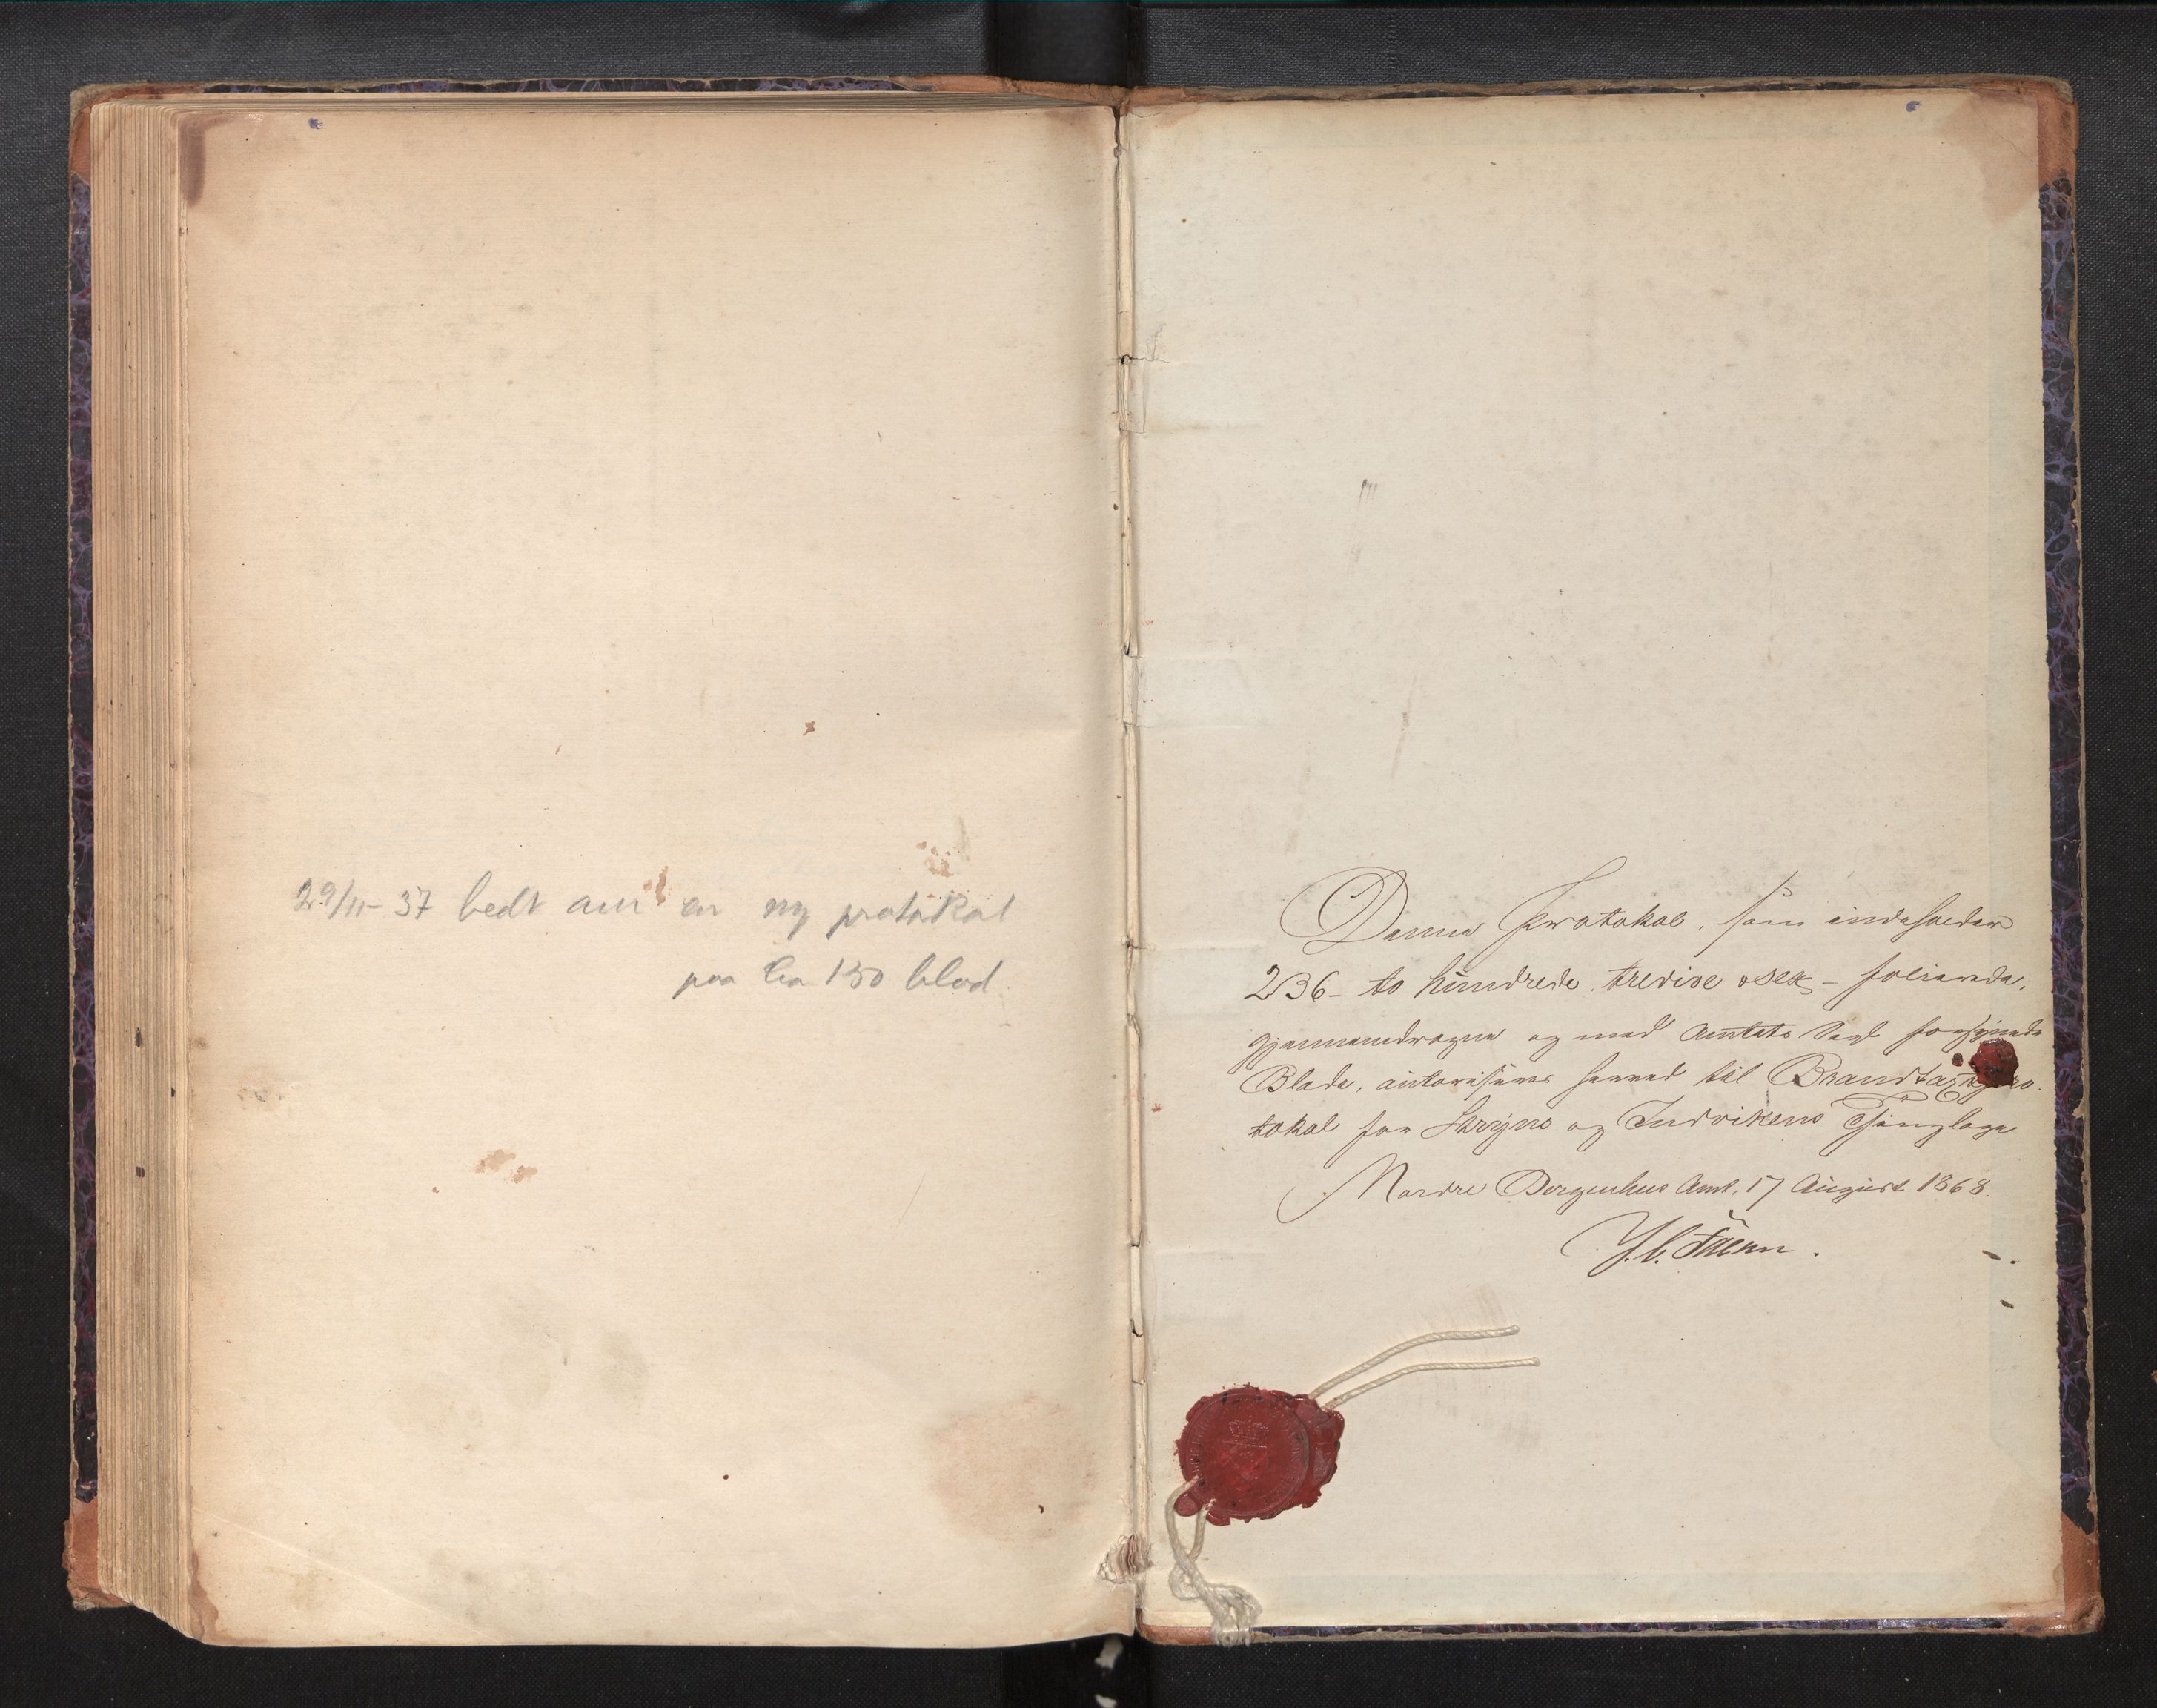 29/11-37 bedt om en ny protokol
paa ca 150 blad.
Denne Protokol, som indeholder
236 – to hundrede tredive sex – folierede,
gjennemdragne og med Amtets Segl forsynede
Blade, autoriseres herved til Brandtaxtpro-
tokol for Stryns og Indvikens Thinglage
Nordre Bergenhus Amt, 17 August 1868.